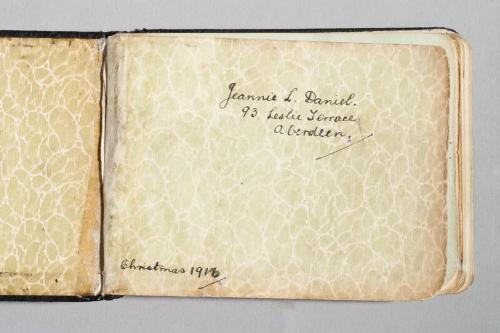 Jeannie L. Daniel.
93 Leslie Terrace
Aberdeen.
Christmas 1916